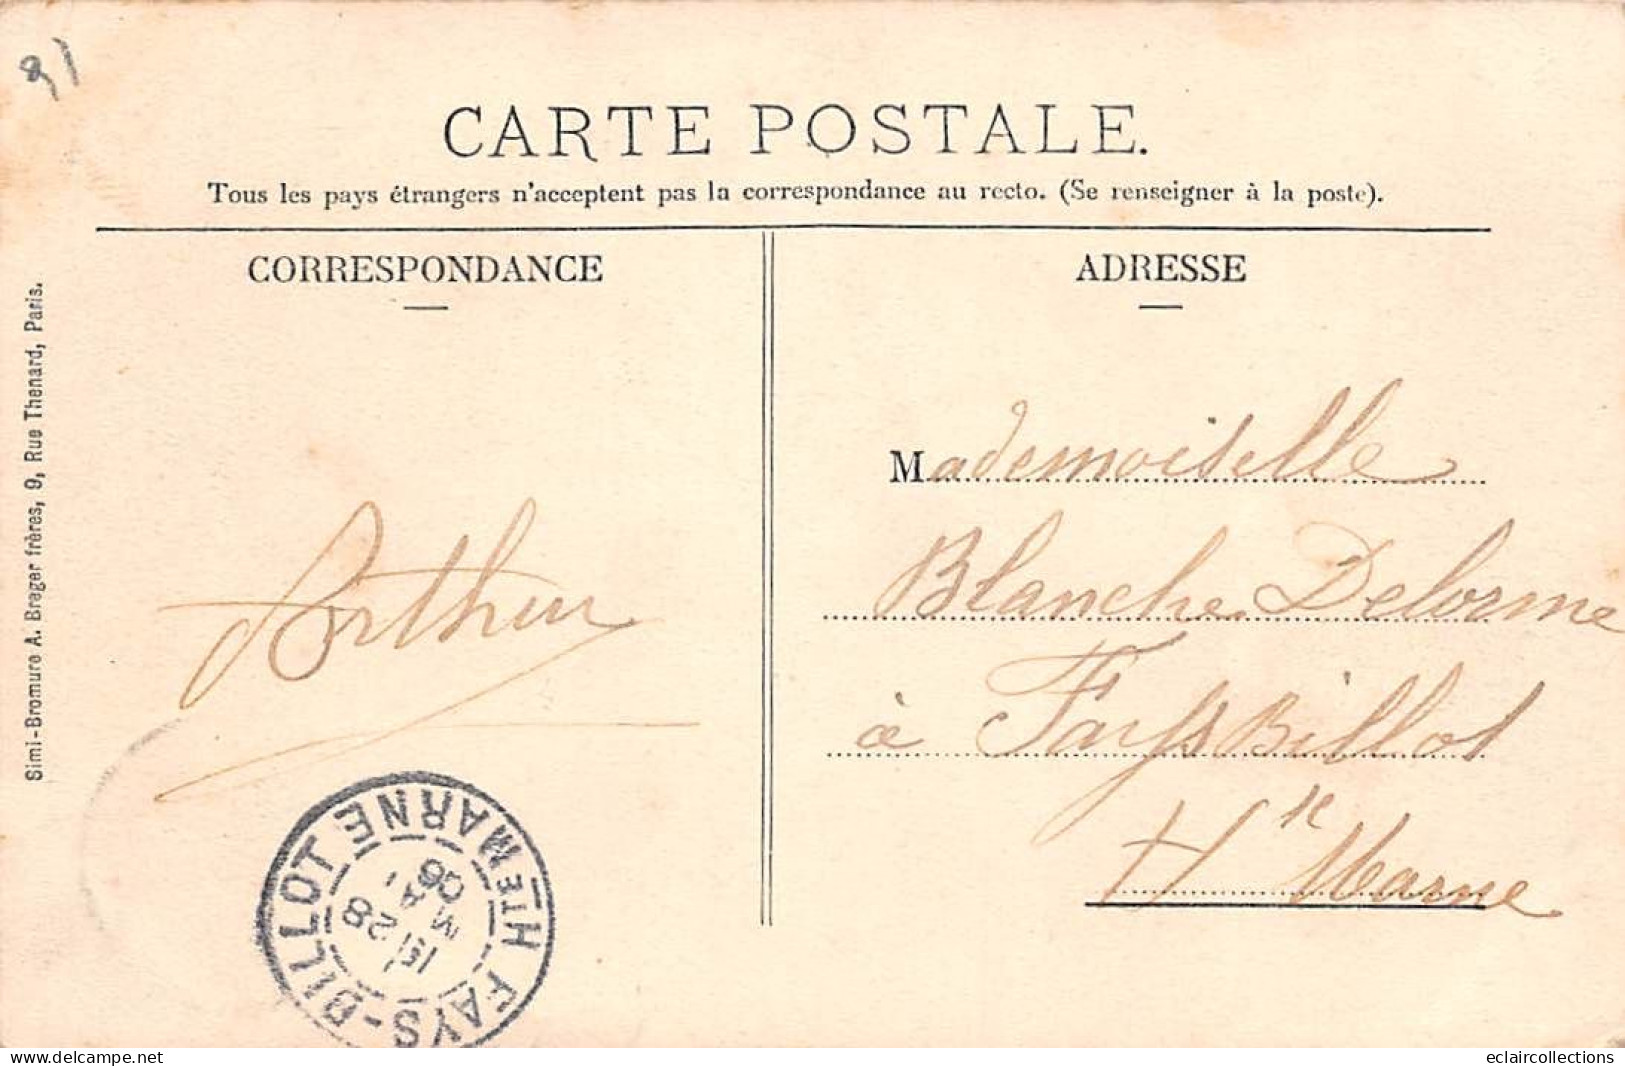 91
CARTE POSTALE.
Tous les pays étrangers n'acceptent pas la correspondance au recto. (Se renseigner à la poste).
CORRESPONDANCE
Arthur
Simi-Bromure A. Breger frères, 9, Rue Thenard, Paris.
FAYS-BILLOT HTE MARNE
28
MAI
06
ADRESSE
Mademoiselle
Blanche Delorme
à Fays Billot
Hte Marne
delcampe.net
eclaircollections